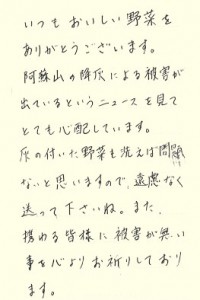 いつもおいしい野菜を
ありがとうございます。
阿蘇山の降灰による被害が
出ているというニュースを見て
とても心配しています。
灰の付いた野菜も洗えば問題
ないと思いますので、遠慮なく
送って下さいね。また、
携わる皆様に被害が無い
事を心よりお祈りしており
ます。